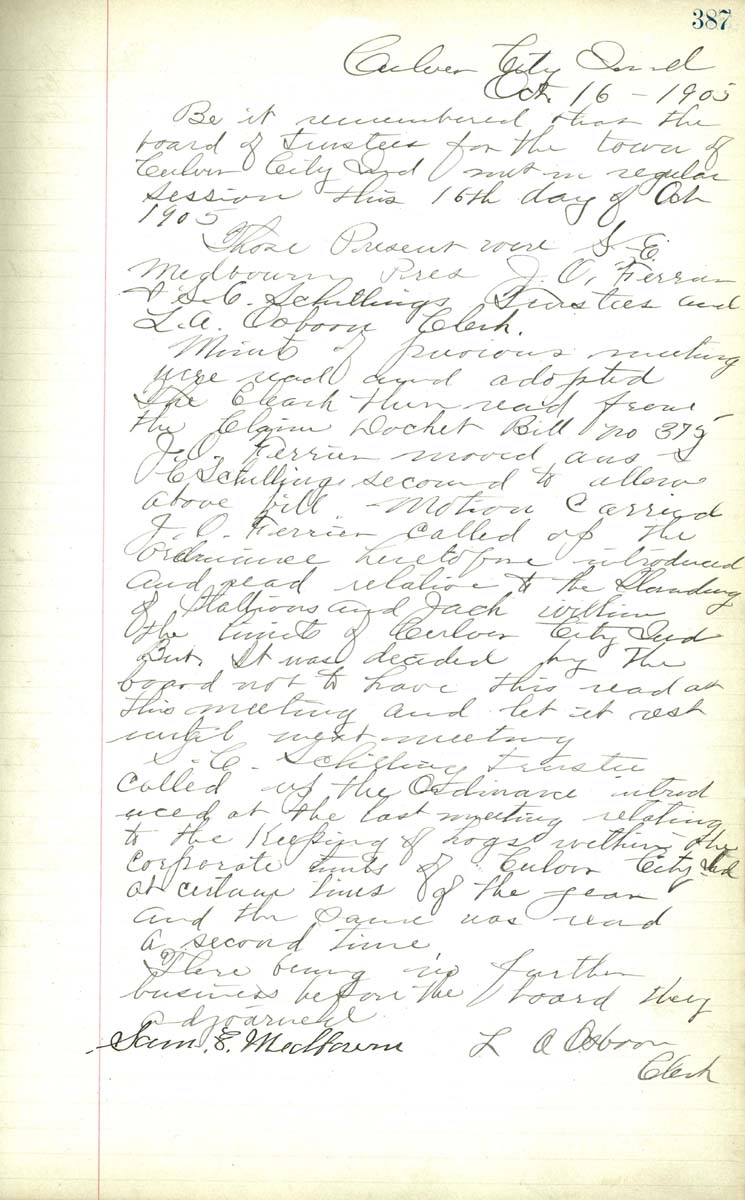 387
Culver City Ind
Oct. 16 - 1905
Be it remembered that the
board of Trustees for the town of
Culver City Ind met in regular
session this 16th day of Oct
1905
Those Present were S. E.
Medbourn Pres J. O. Ferrier
& S. C. Schillings Trustees and
L. A. Osboon Clerk.
Minits of previous meeting
were read and adopted
The Clerk then read from
the Claim Docket Bill no 375
J. O. Ferrier moved ans S
C Schilling second to allow
above bill - Motion Carried
J. O. Ferrier called op the
Ordninnce heretofore introduced
and read relative to the Standing
of Stallions and Jack within
the limits of Culver City Ind
But, It was decided by the
board not to have this read at
this meeting and let it rest
until next meeting
S. C. Schilling Trustee
called up the Ordinance introd
uced at the last meeting relating
to the Keeping of hogs within the
corporate limits of Culver City Ind
at certain times of the year
and the same was read
a second time
There being no further
business before the board they
adjoarned
Sam. E. Medbourn L A Osboon
Clerk